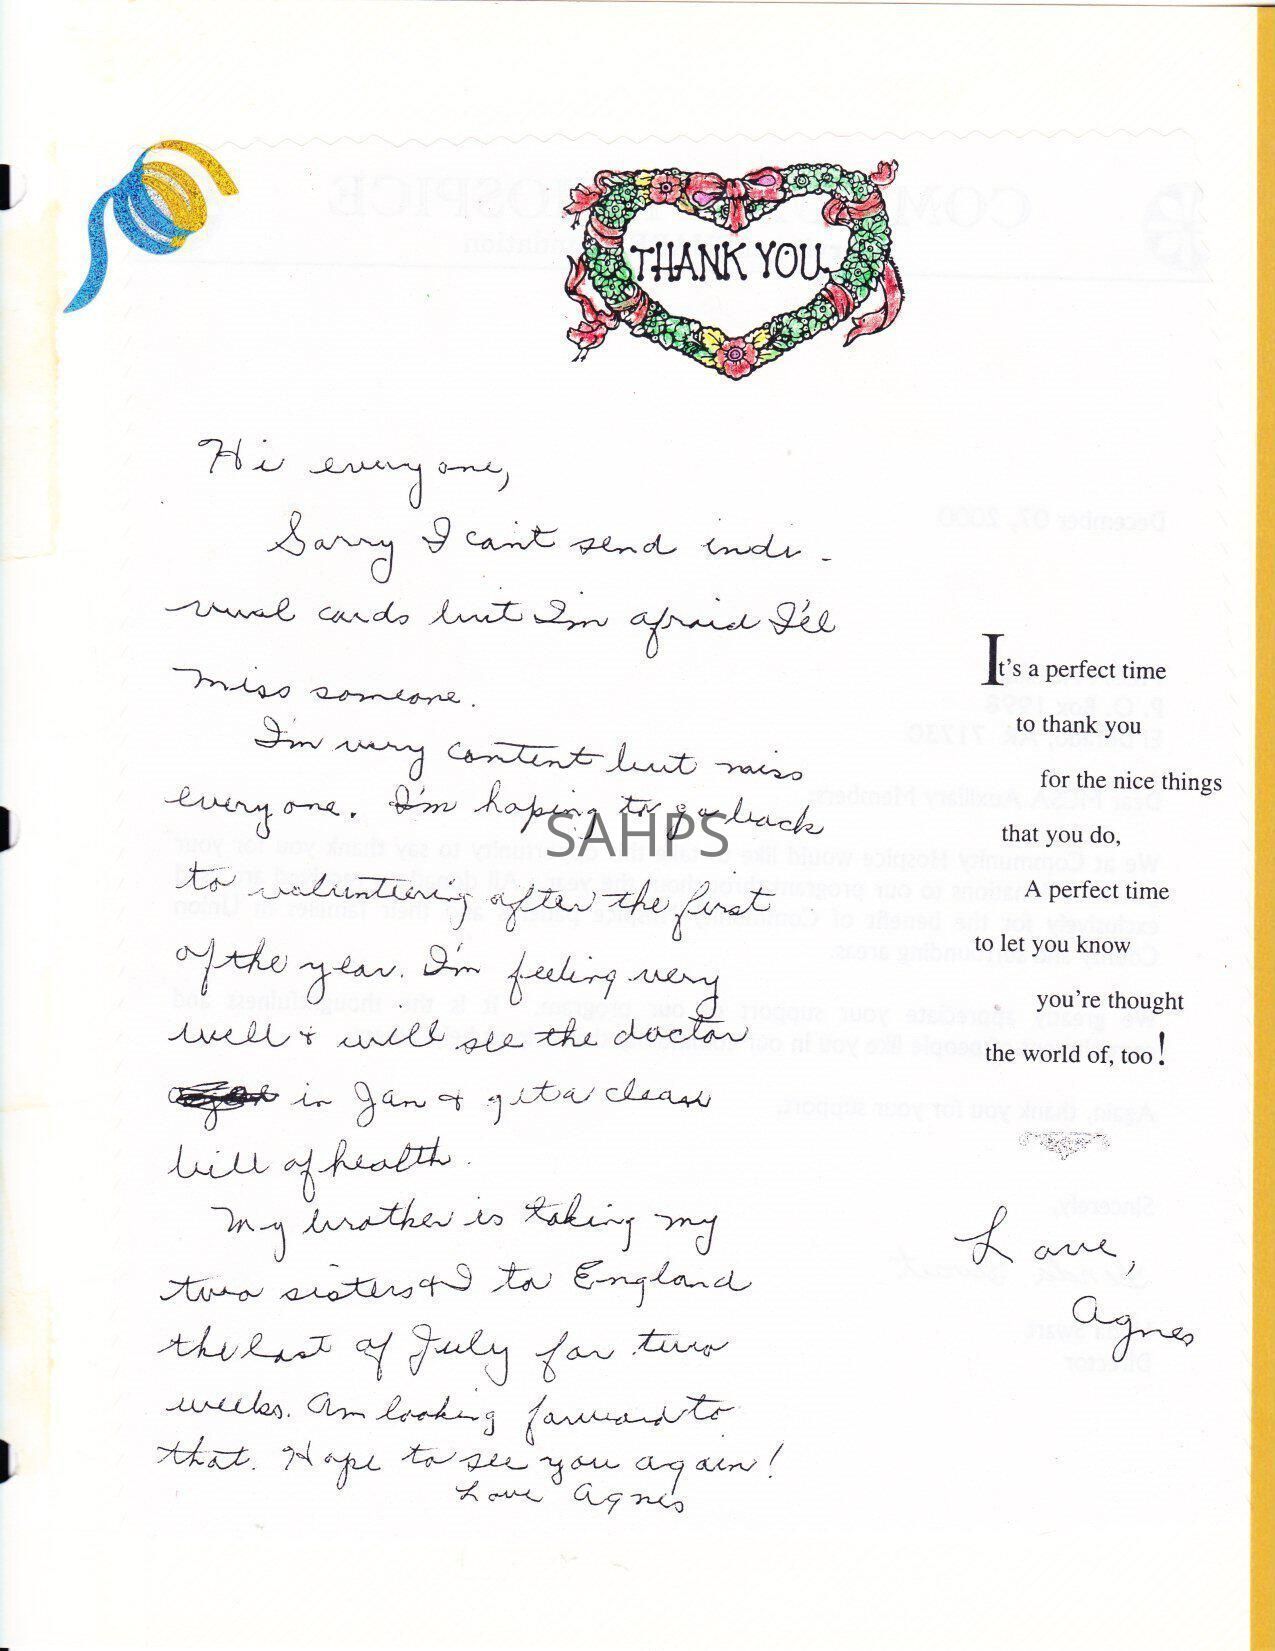 THANK YOU
Hi everyone,
Sorry I can't send indi-
vual cards but I'm afraid I'll
miss someone.
I'm very content but miss
everyone. I'm hoping to go back
to volunteering after the first
of the year. I'm feeling very
well & will see the doctor
in Jan & get a clean
bill of health.
My brother is taking my
two sisters & I to England
the last of July for two
weeks. Am looking forward to
that. Hope to see you again!
Love Agnes
It's a perfect time
to thank you
for the nice things
that you do,
A perfect time
to let you know
you're thought
the world of, too!
Love,
Agnes
SAHPS